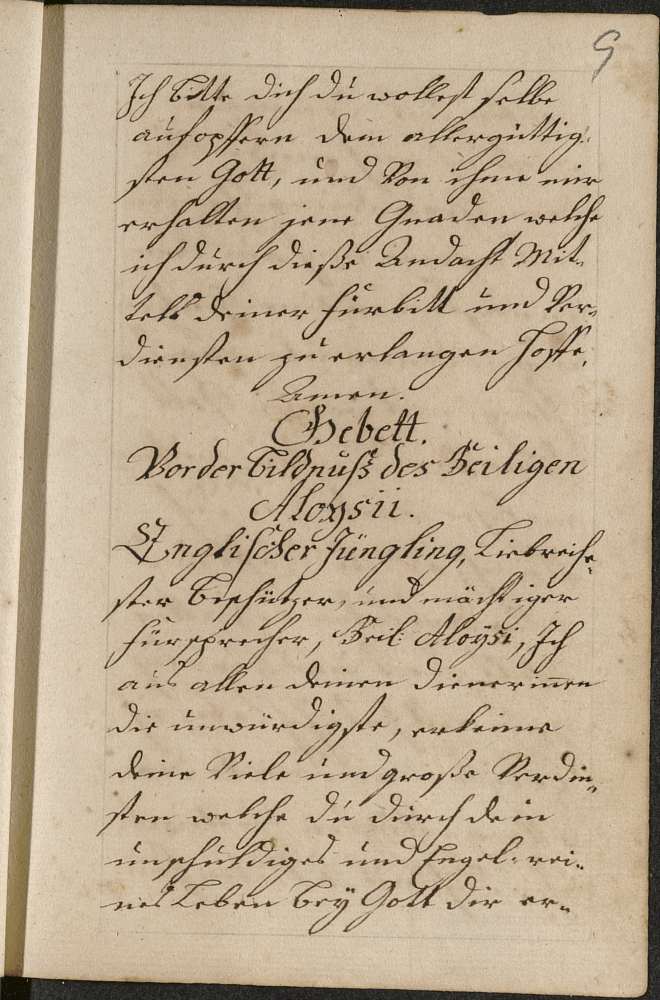 9
Ich bitte dich du wollest selbe
aufopffern dem allergüttig-
sten Gott, und von ihme mir
erhalten jene Gnaden welche
ich durch dieße Andacht Mit-
tels deiner fürbitt und Ver-
diensten zu erlangen hoffe,
Amen.
Gebett.
Vor der bildnuß des Heiligen
Aloysii.
Englischer Jüngling, Liebreich-
ster beschützer, und mächtiger
fürsprecher, Heil: Aloysi, Ich
aus allen deinen dienerinnen
die unwürdigste, erkenne
deine Viele und große Verdin-
sten welche du durch dein
unschuldiges und Engel-rei-
nes Leben bey Gott dir er-